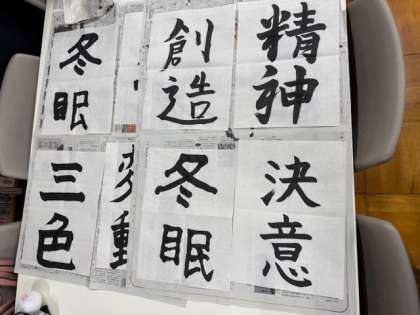 冬眠
創造
精神
三色
冬眠
決意